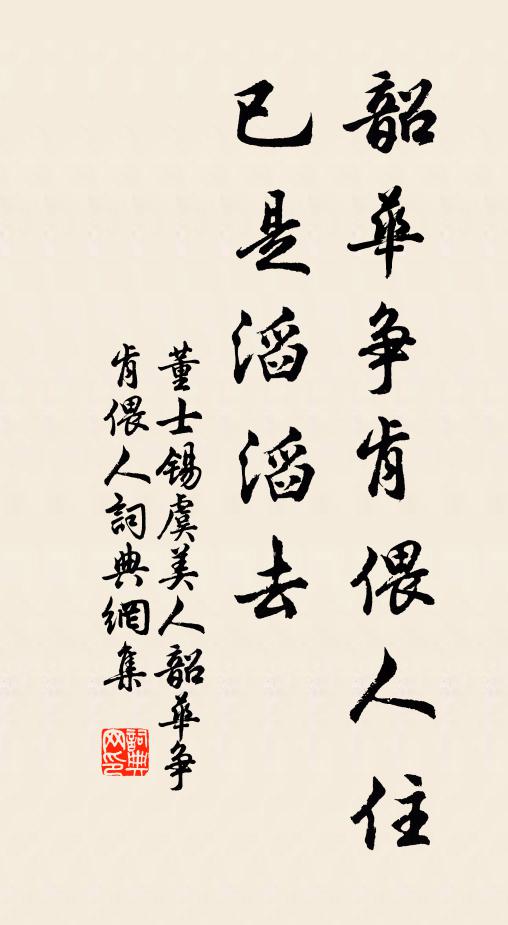 韶華争肯偎人住
已是滔滔去
董士錫虞美人韶華争
肯偎人詞典網集
詞典
网印